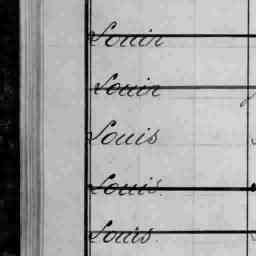 Louis
Louis
Louis
Louis
Louis